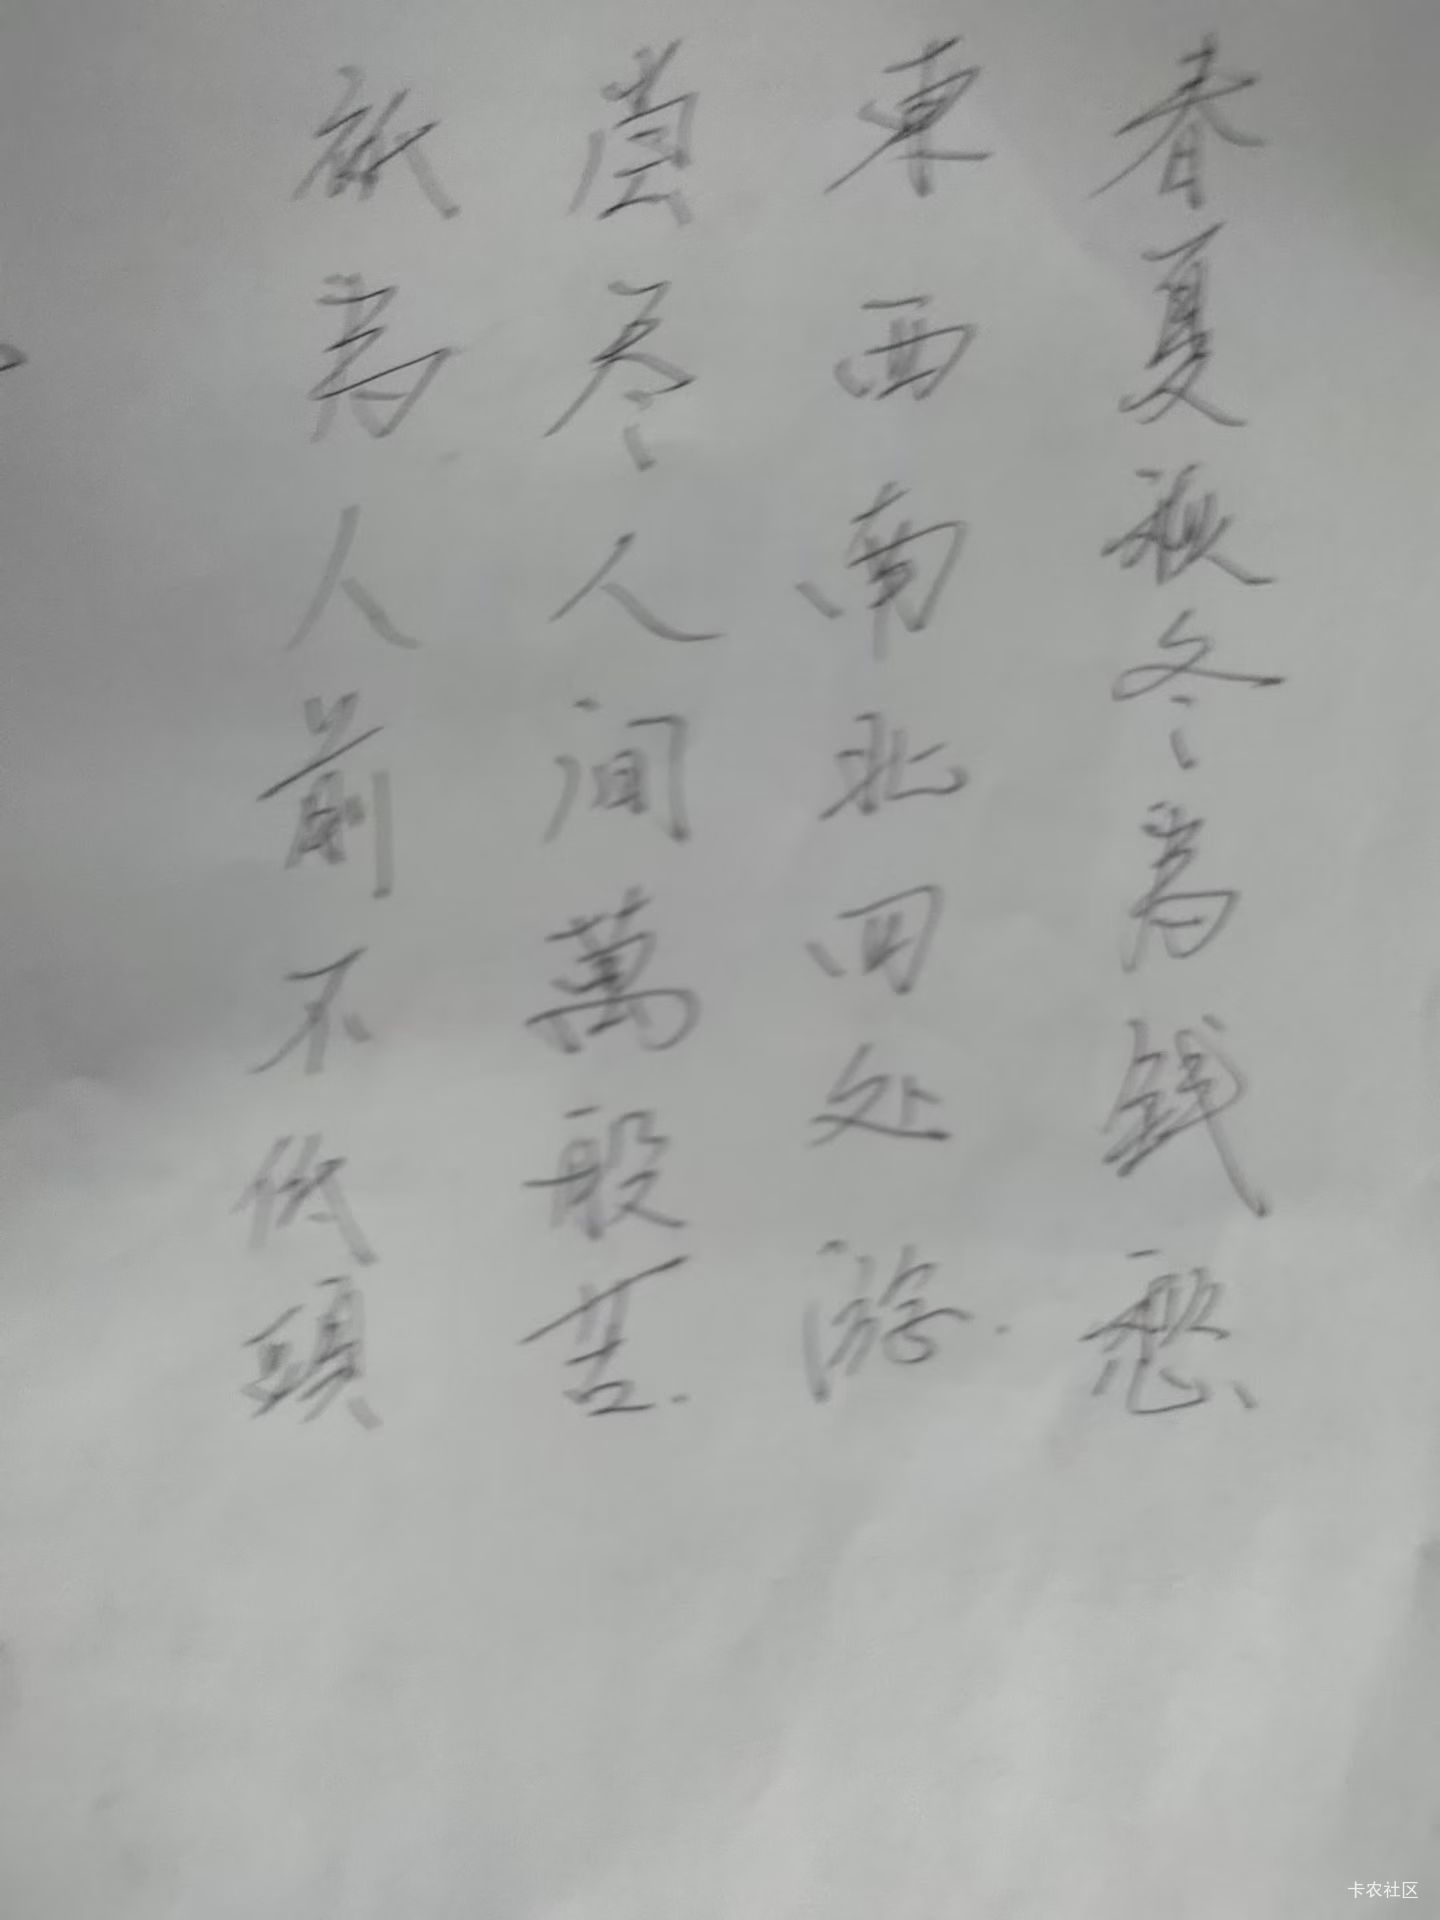 春夏秋冬為錢愁
東西南北四处游.
嘗尽人间萬般苦.
祇為人前不低頭
卡农社区